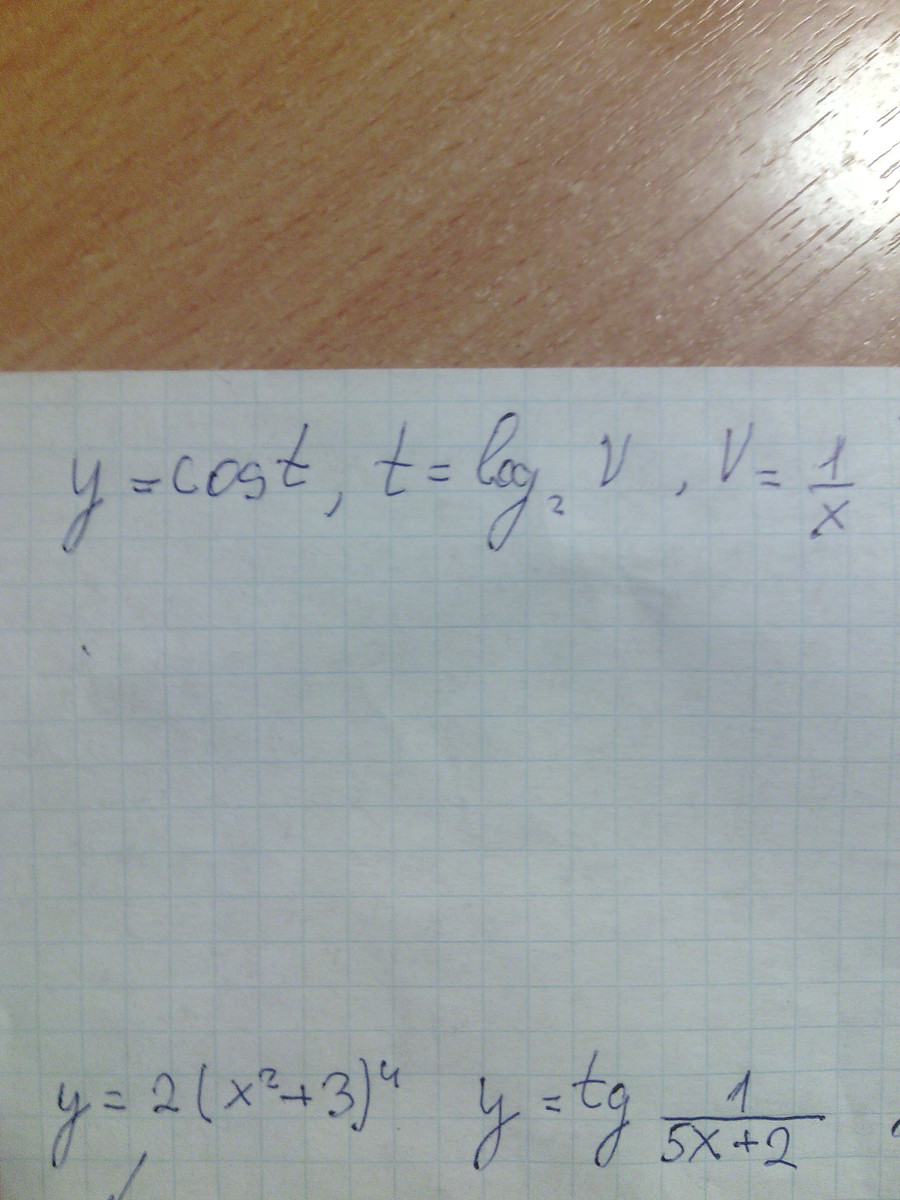 y = cos t, t = log₂ V, V = 1/x
y = 2(x²+3)⁴ y = tg 1/(5x+2)